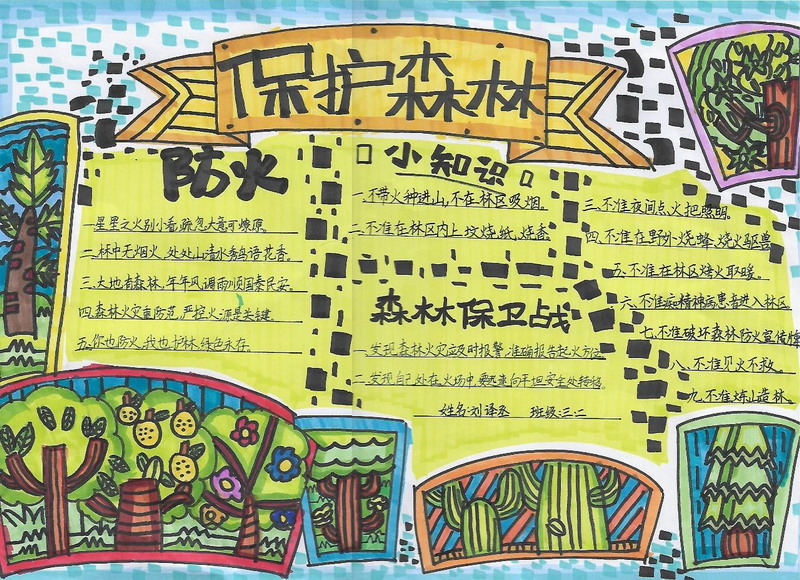 保护森林
防火
一.星星之火别小看,疏忽大意可燎原。
二.林中无烟火,处处山清水秀鸟语花香。
三.大地有森林,年年风调雨顺国泰民安。
四.森林火灾重防范,严控火源是关键。
五.你也防火,我也护林,绿色永存。
小知识
一.不带火种进山,不在林区吸烟。
二.不准在林区内上坟烧纸,烧香
三.不准夜间点火把照明。
四.不准在野外烧蜂,烧火驱兽
五.不准在林区烤火取暖。
六.不准痴精神病患者进入林区
七.不准破坏森林防火宣传牌
八.不准见火不救。
九.不准炼山造林。
森林保卫战
一.发现森林火灾及时报警,准确报告起火方位
二.发现自己处在火场中,要迅速向平坦安全处转移。
姓名:刘译丞 班级:三.二